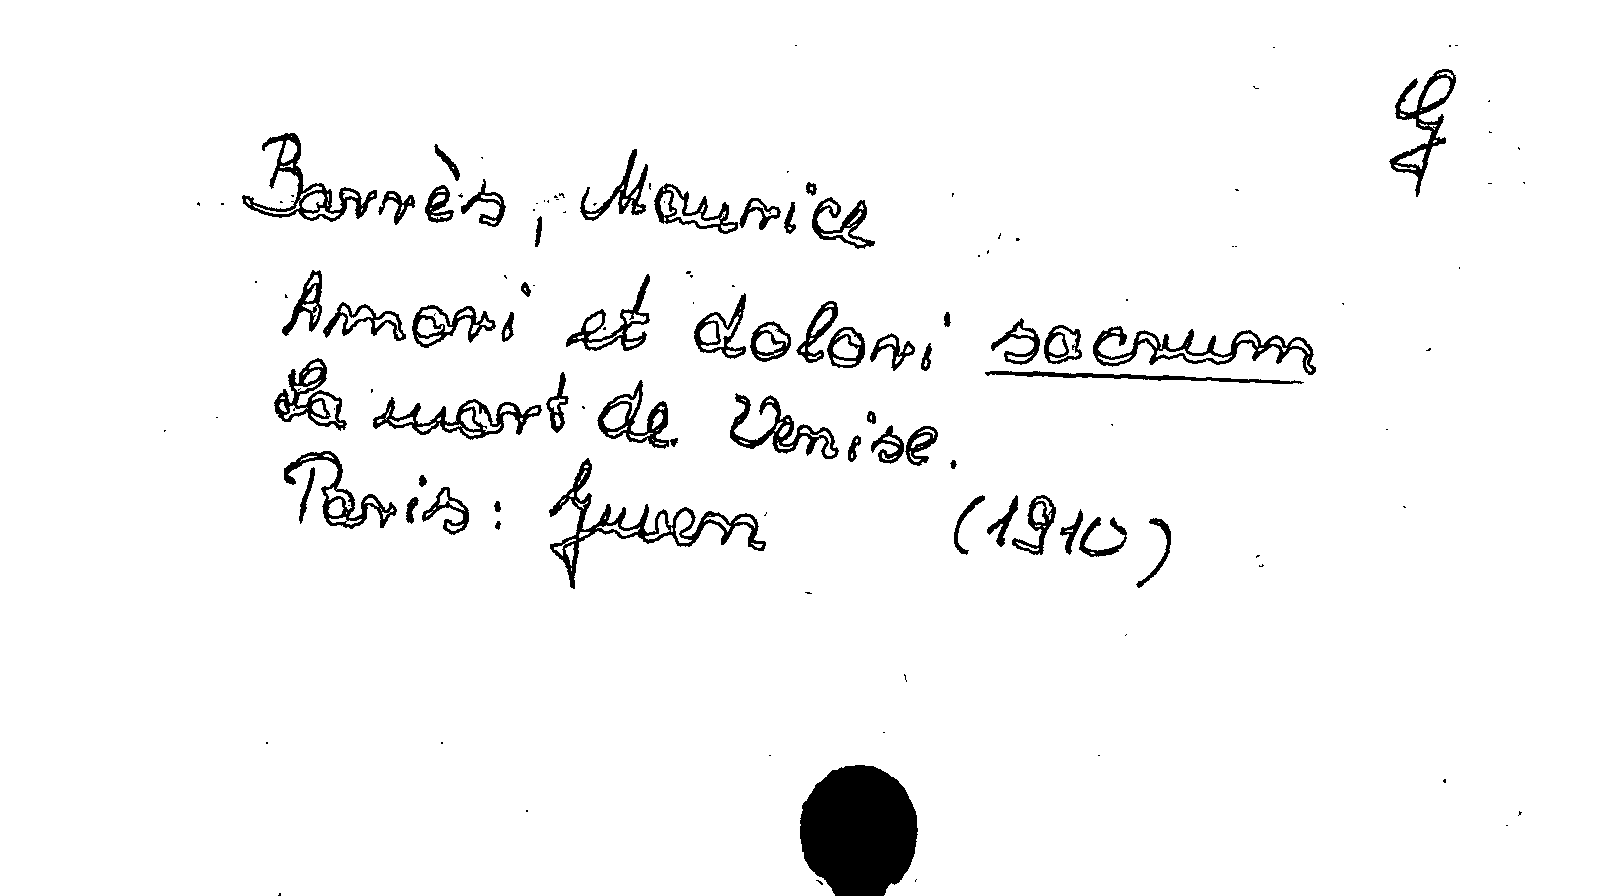 G
Barrès, Maurice
Amori et dolori sacrum
La mort de Venise.
Paris: Juven (1910)